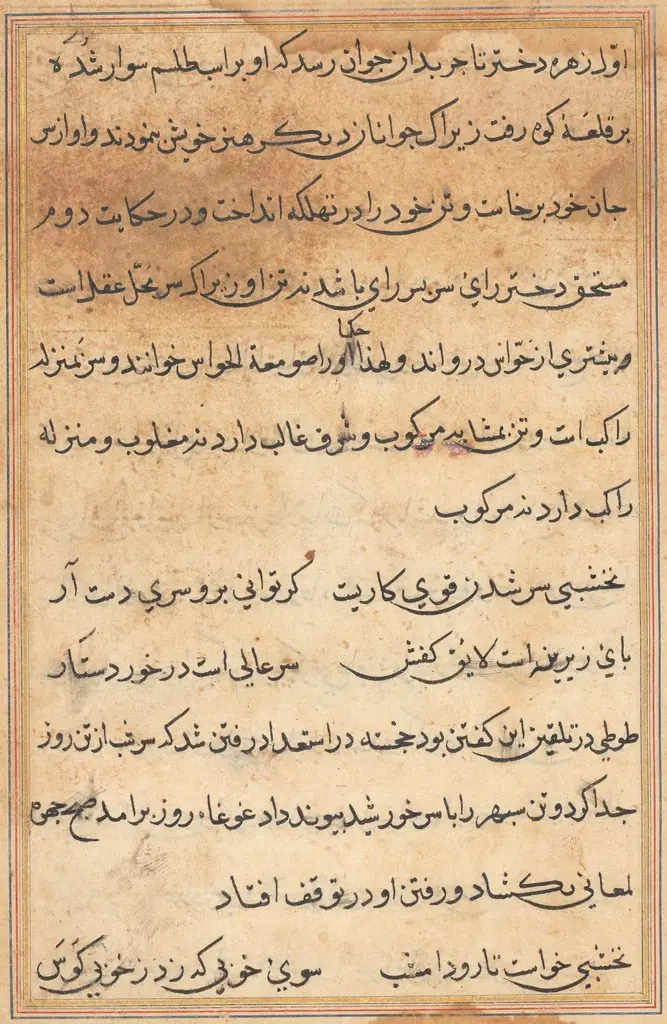 اول زهره دختر تاجر بدان جوان رسد که او بر اسب طلسم سوار شده
بر قلعهٔ کوه رفت زیراک جوانان دیگر هنر خویش نمودند و او از سر
جان خود برخاست و تن خود را در تهلکه انداخت و در حکایت دوم
مستحق دختر رای سر پسر رای باشد نه تن او زیراکه سر محل عقل است
و بیشتری از حواس در واند و لهذا حکما او را صومعة الحواس خوانند و سر بمنزله
راکب است و تن بمشابه مرکوب و شرف غالب دارد نه مغلوب و منزله
راکب دارد نه مرکوب
نخشبی سر شدن قوی کاریت گر توانی برو سری دست آر
پای زیرین است لایق کفش سر عالی است در خور دستار
طوطی در تلقین این گفتن بود خجسته در استعداد رفتن شد که سر شب از تن روز
جدا کرد و تن سپهر را با سر خورشید پیوند داد غوغاء روز برامد صبح چهره
لمعانی بکشاد و رفتن او در توقف افتاد
نخشبی خواست تا رود امشب سوی خوبی که زد ز خوبی کوس